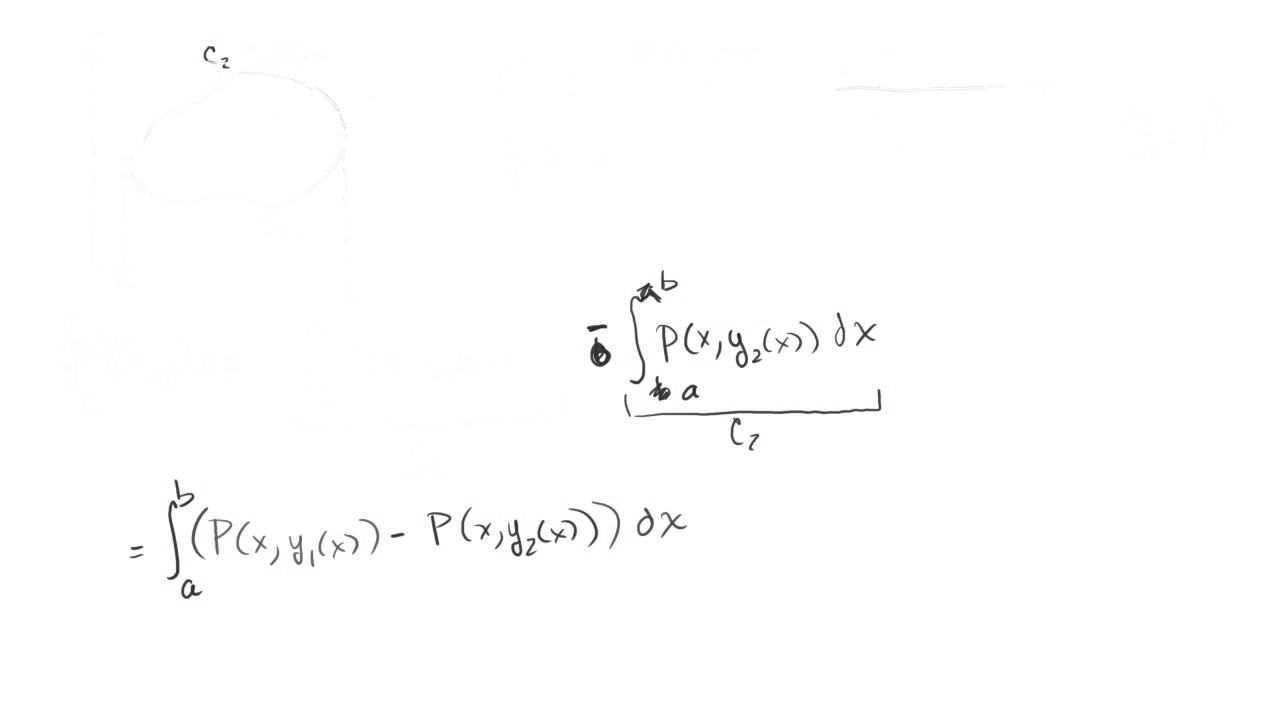 C₂
- ∫ₐᵇ P(x, y₂(x)) dx
C₂
= ∫ₐᵇ (P(x, y₁(x)) - P(x, y₂(x))) dx